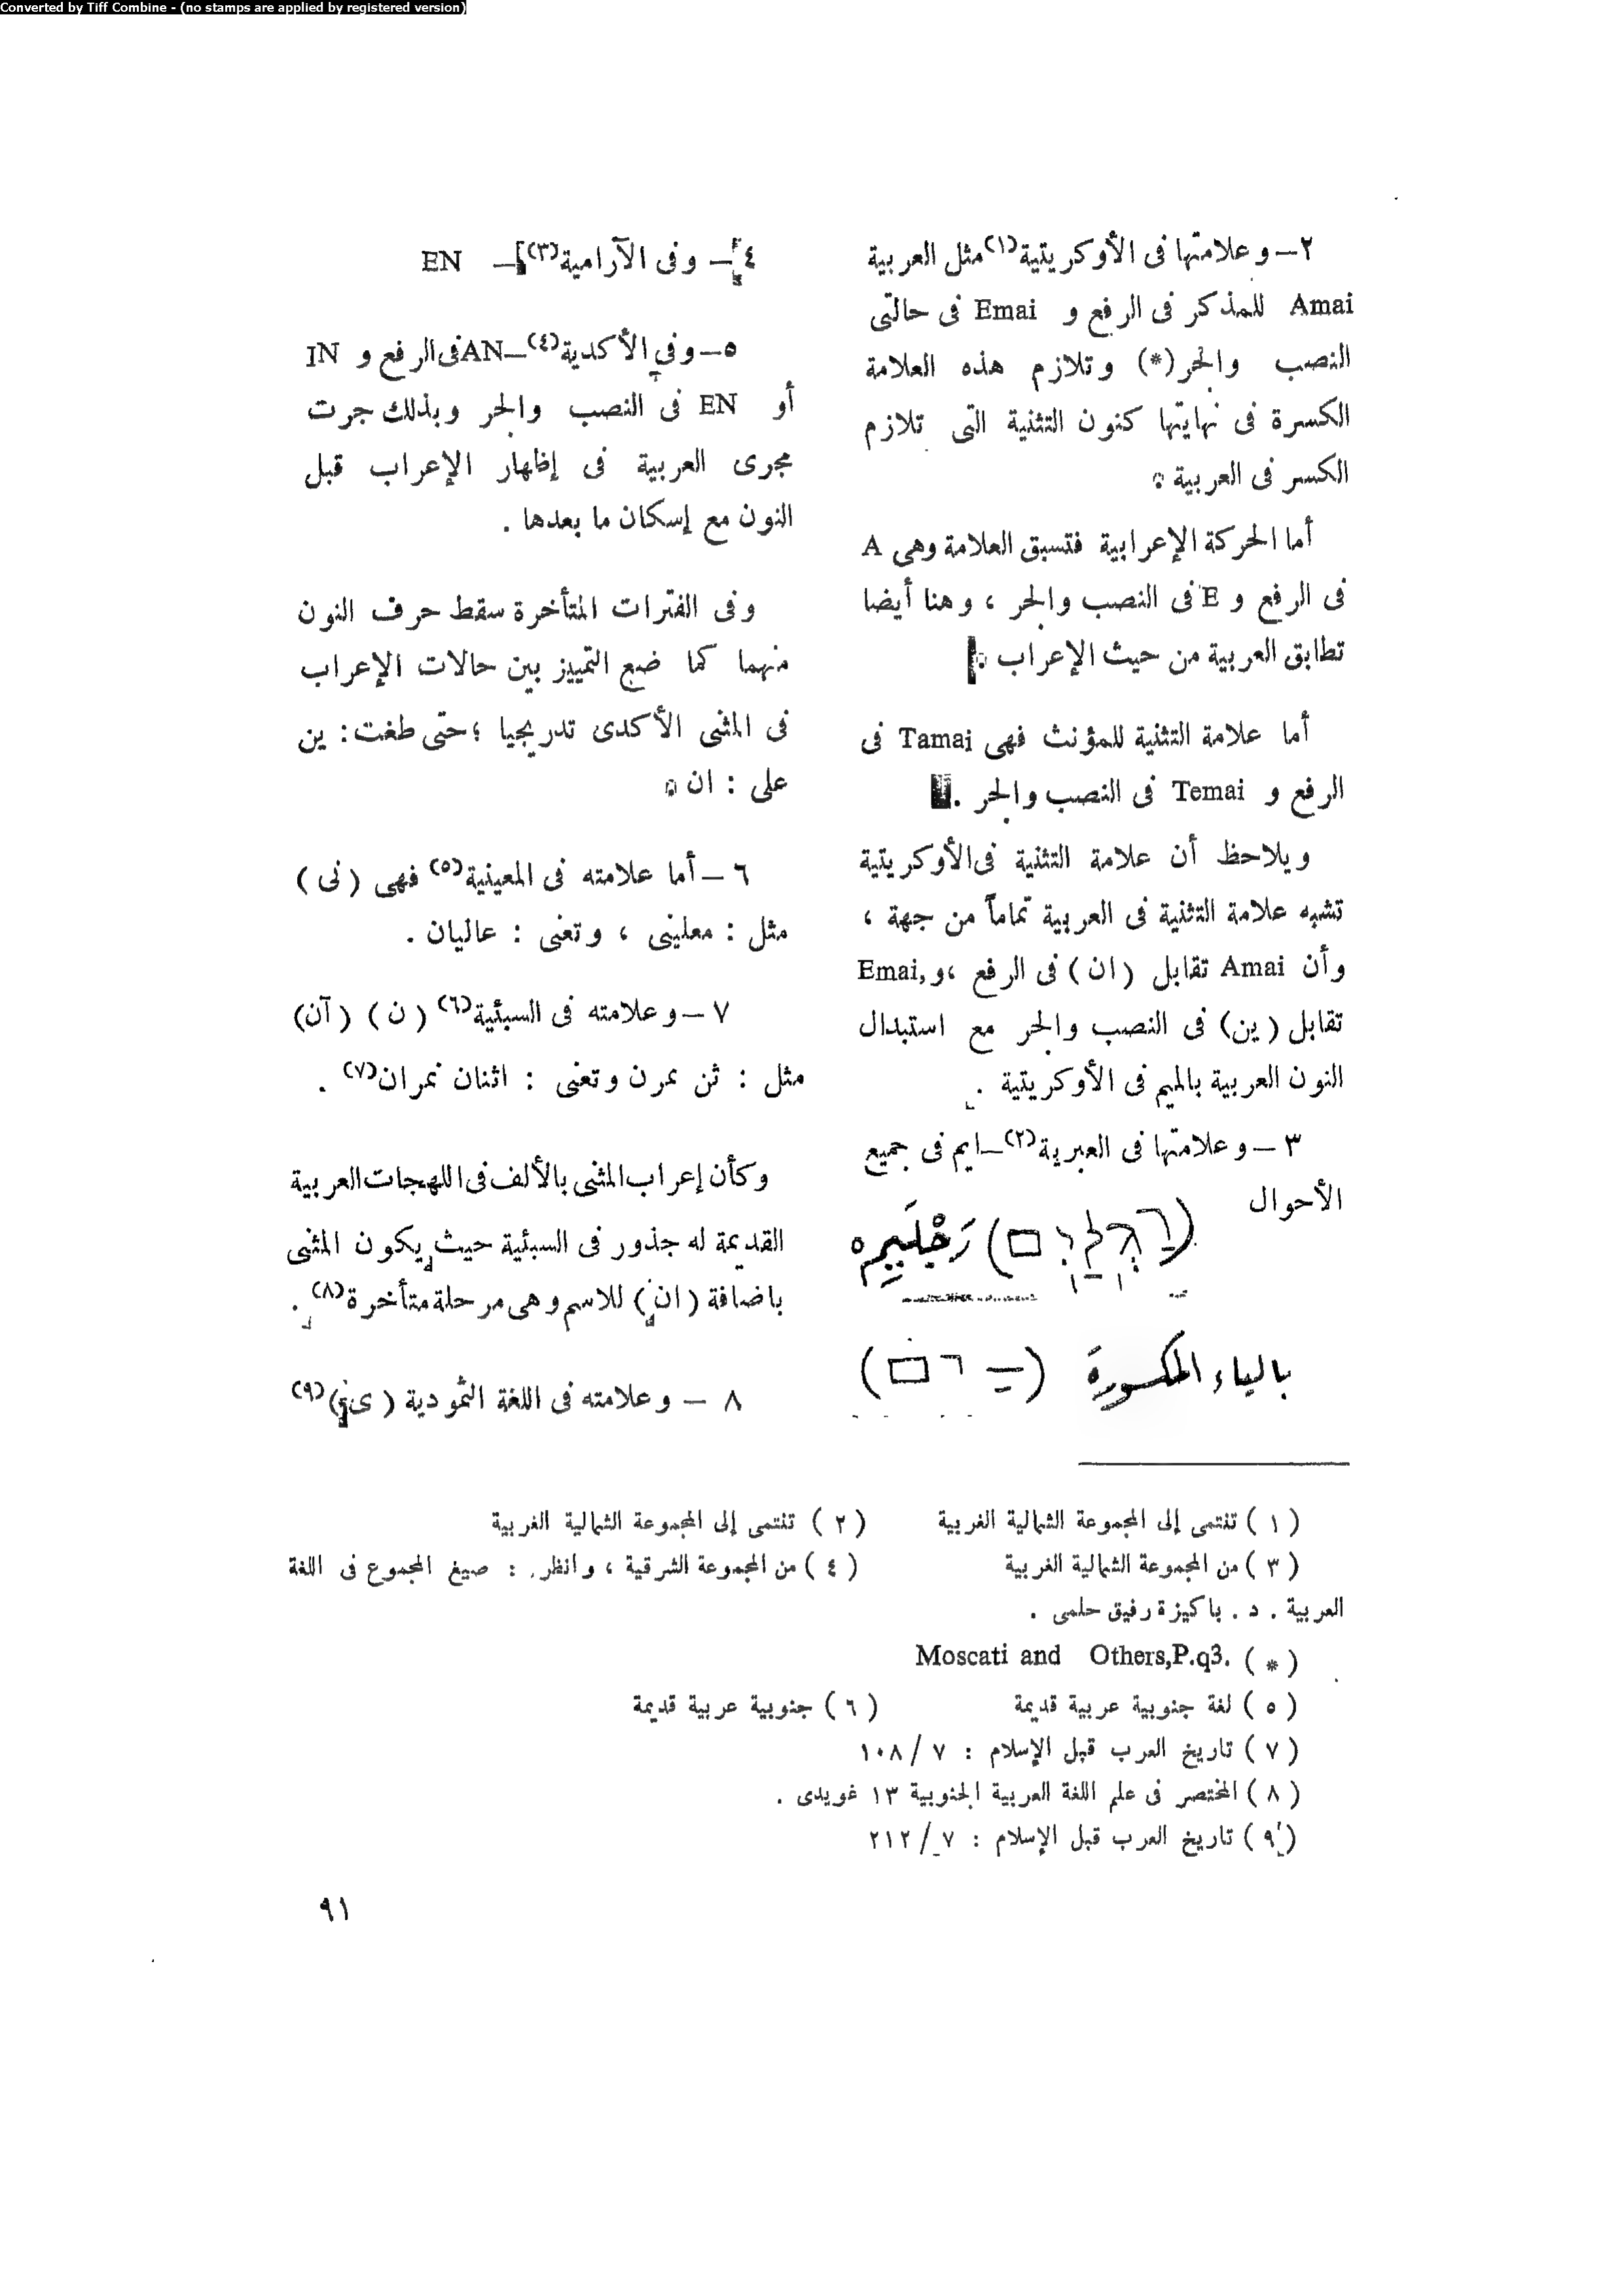 Converted by Tiff Combine - (no stamps are applied by registered version)
٢ – وعلامتها فى الأوكريتية(١) مثل العربية
Amai للمذكر فى الرفع و Emai فى حالتى
النصب والجر (*) وتلازم هذه العلامة
الكسرة فى نهايتها كنون التثنية التى تلازم
الكسر فى العربية .
أما الحركة الإعرابية فتسبق العلامة وهى A
فى الرفع و E فى النصب والجر ، وهنا أيضا
تطابق العربية من حيث الإعراب .
أما علامة التثنية للمؤنث فهى Tamai فى
الرفع و Temai فى النصب والجر .
ويلاحظ أن علامة التثنية فى الأوكريتية
تشبه علامة التثنية فى العربية تماماً من جهة ،
وأن Amai تقابل ( ان ) فى الرفع ، و Emai,
تقابل ( ين) فى النصب والجر مع استبدال
النون العربية بالميم فى الأوكريتية .
٣ – وعلامتها فى العبرية(٢) – ايم فى جميع
الأحوال
رَجْلَيِم
بالياء المكسورة
٤ – وفى الآرامية(٣) – EN
٥ – وفى الأكدية(٤) – AN فى الرفع و IN
أو EN فى النصب والجر وبذلك جرت
مجرى العربية فى إظهار الإعراب قبل
النون مع إسكان ما بعدها .
وفى الفترات المتأخرة سقط حرف النون
منهما كما ضيع التمييز بين حالات الإعراب
فى المثنى الأكدى تدريجيا ؛ حتى طغت : ين
على : ان .
٦ – أما علامته فى المعينية(٥) فهى ( نى )
مثل : معلينى ، وتعنى : عاليان .
٧ – وعلامته فى السبئية(٦) ( ن ) ( آن)
مثل : ثن نمرن وتعنى : اثنان نمران(٧) .
وكأن إعراب المثنى بالألف فى اللهجات العربية
القديمة له جذور فى السبئية حيث يكون المثنى
باضافة ( ان ) للاسم وهى مرحلة متأخرة(٨) .
٨ – وعلامته فى اللغة الثمودية ( ى )(٩)
( ١ ) تنتمى إلى المجموعة الشمالية الغربية ( ٢ ) تنتمى إلى المجموعة الشمالية الغربية
( ٣ ) من المجموعة الشمالية الغربية ( ٤ ) من المجموعة الشرقية ، وانظر : صيغ المجموع فى اللغة
العربية . د . باكيزة رفيق حلمى .
( * ) Moscati and Others,P.q3.
( ٥ ) لغة جنوبية عربية قديمة ( ٦ ) جنوبية عربية قديمة
( ٧ ) تاريخ العرب قبل الإسلام : ٧ / ١٠٨
( ٨ ) المختصر فى علم اللغة العربية الجنوبية ١٣ غويدى .
( ٩ ) تاريخ العرب قبل الإسلام : ٧ / ٢١٢
٩١